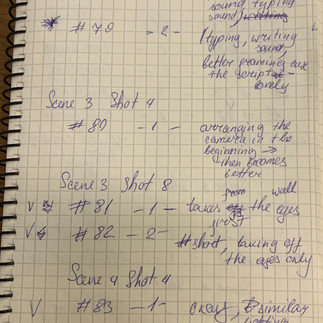 sound typing
sound, writing
# 79 - 2 - (typing, writing
sound,
better framing
the script -
lovely
Scene 3 Shot 4
# 80 - 1 - arranging the
camera in the
beginning →
then frames
better
Scene 3 Shot 8
from wall
V # 81 - 1 - takes off the eyes
first
V # 82 - 2 - # short, taking off
the eyes only
Scene 4 Shot 4
V # 83 - 1 - okay, similar
lighting